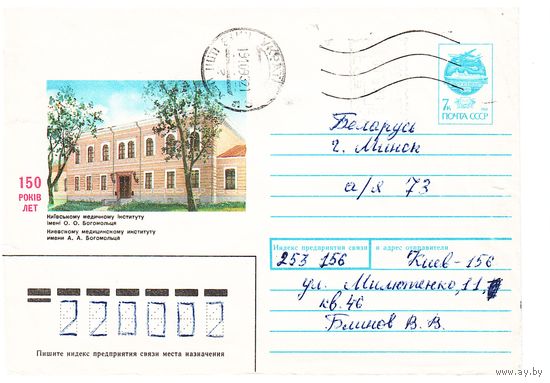 7к
ПОЧТА СССР
Беларусь
г. Минск
а/я 73
150
РОКІВ
ЛЕТ
Київському медичному інституту
імені О. О. Богомольця
Киевскому медицинскому институту
имени А. А. Богомольца
Индекс предприятия связи и адрес отправителя
253 156 Киев-156
ул. Милютенко, 11,
кв. 46
Блинов В. В.
220002
Пишите индекс предприятия связи места назначения
www.ay.by